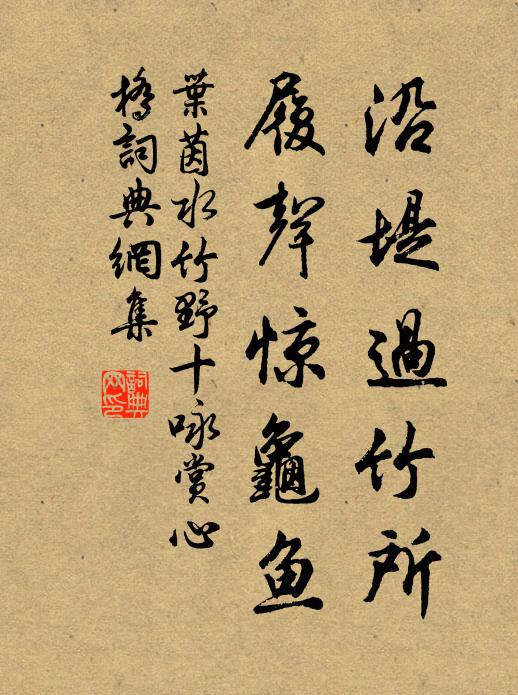 沿堤過竹所
履聲惊龜鱼
葉茵水竹野十咏賞心
橋詞典網集
詞典
网印